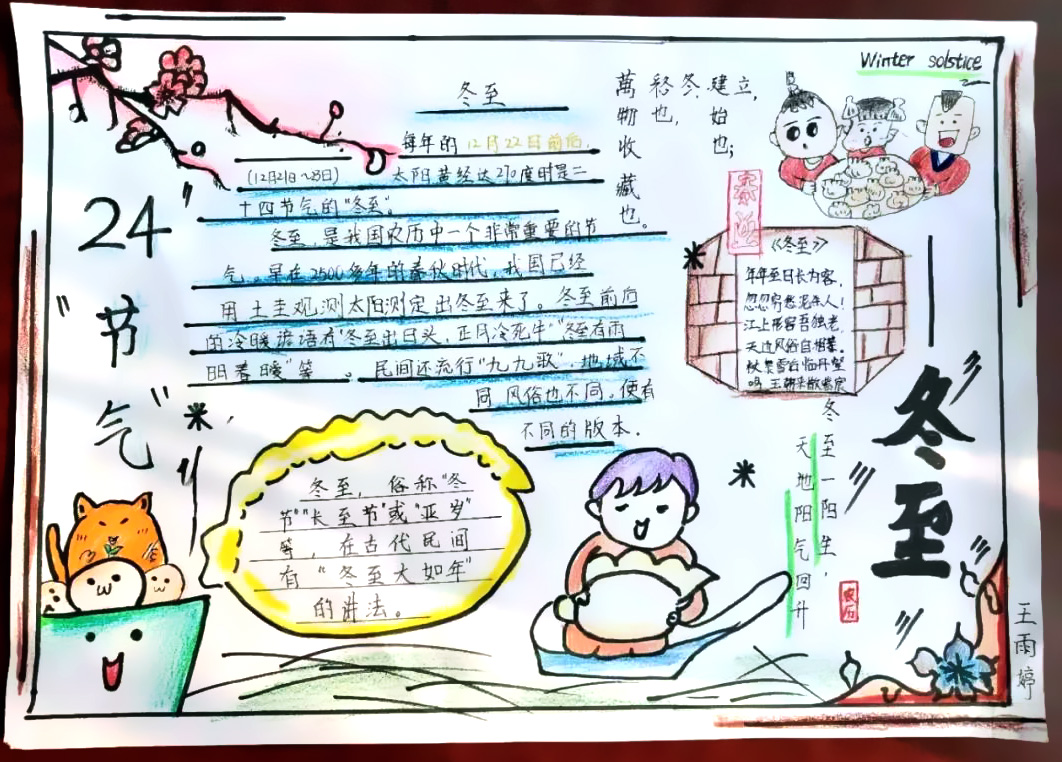 Winter solstice
"24
"节
气"
冬至
每年的12月22日前后,
(12月21日~23日) 太阳黄经达270度时是二
十四节气的"冬至"。
冬至,是我国农历中一个非常重要的节
气,早在2500多年的春秋时代,我国已经
用土圭观测太阳测定出冬至来了。冬至前后
的冷暖谚语有"冬至出日头,正月冷死牛""冬至有雨
明春暖"等。民间还流行"九九歌",地域不
同风俗也不同。便有
不同的版本.
萬物收藏也。
终也,
冬,
建立,
始也;
《冬至》
年年至日长为客,
忽忽穷愁泥杀人!
江上形容吾独老,
天边风俗自相亲。
杖藜雪后临丹壑
冬至一阳生,
天地阳气回升
农历
冬至
冬至,俗称"冬
节""长至节"或"亚岁"
等,在古代民间
有"冬至大如年"
的讲法。
王雨婷